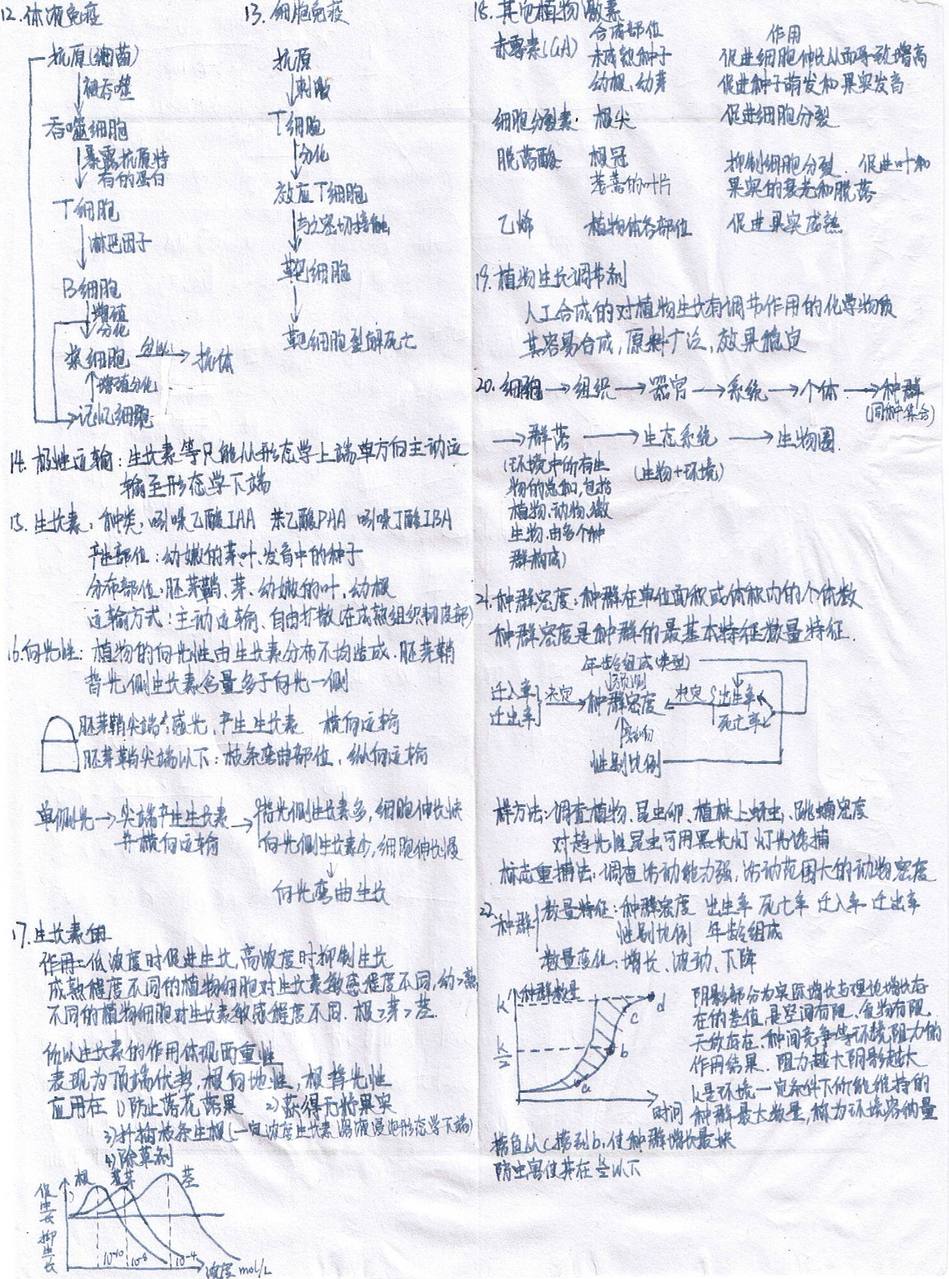 12. 体液免疫
抗原(细菌)
被吞噬
吞噬细胞
暴露抗原特
有的蛋白
T细胞
淋巴因子
B细胞
增殖
分化
浆细胞 分泌 抗体
增殖分化
记忆细胞
13. 细胞免疫
抗原
刺激
T细胞
分化
效应T细胞
与之密切接触
靶细胞
靶细胞裂解死亡
14. 极性运输：生长素等只能从形态学上端单方向主动运
输至形态学下端
15. 生长素：种类：吲哚乙酸IAA 苯乙酸PAA 吲哚丁酸IBA
产生部位：幼嫩的芽、叶、发育中的种子
分布部位：胚芽鞘、芽、幼嫩的叶、幼根
运输方式：主动运输、自由扩散(在成熟组织韧皮部)
16. 向光性：植物的向光性由生长素分布不均造成。胚芽鞘
背光侧生长素含量多于向光一侧
胚芽鞘尖端：感光，产生生长素 横向运输
胚芽鞘尖端以下：枝条弯曲部位，纵向运输
单侧光→尖端产生生长素
并横向运输
背光侧生长素多，细胞伸长快
向光侧生长素少，细胞伸长慢
向光弯曲生长
17. 生长素的
作用：低浓度时促进生长，高浓度时抑制生长
成熟程度不同的植物细胞对生长素敏感程度不同，幼>熟
不同的植物细胞对生长素敏感程度不同. 根>芽>茎.
所以生长素的作用体现两重性
表现为顶端优势，根向地性，根背光性
应用在 1)防止落花落果 2)获得无籽果实
3)扦插枝条生根(一定浓度生长素溶液浸泡形态学下端)
4)除草剂
促生长
抑生长
根 芽 茎
10-10 10-8 10-4 浓度 mol/L
18. 其他植物激素
合成部位 作用
赤霉素(GA) 未成熟种子 促进细胞伸长从而导致增高
幼根、幼芽 促进种子萌发和果实发育
细胞分裂素 根尖 促进细胞分裂
脱落酸 根冠 抑制细胞分裂. 促进叶和
萎蔫的叶片 果实的衰老和脱落
乙烯 植物体各部位 促进果实成熟
19. 植物生长调节剂
人工合成的对植物生长有调节作用的化学物质
其容易合成，原料广泛，效果稳定
20. 细胞→组织→器官→系统→个体→种群
(同种集合)
→群落→生态系统→生物圈
(生物+环境)
(环境中所有生
物的总和，包括
植物、动物、微
生物. 由多个种
群构成)
21. 种群密度：种群在单位面积或体积内的个体数
种群密度是种群的最基本特征数量特征.
年龄组成(类型)
预测
迁入率
迁出率
决定 种群密度 决定
出生率
死亡率
影响
性别比例
样方法：调查植物、昆虫卵、植株上蚜虫、跳蝻密度
对趋光性昆虫可用黑光灯 灯光诱捕
标志重捕法：调查活动能力强，活动范围大的动物密度
22. 种群 数量特征：种群密度 出生率 死亡率 迁入率 迁出率
性别比例 年龄组成
数量变化：增长、波动、下降
种群数量
k
k/2
a
b
c
d
时间
阴影部分为实际增长与理论增长存
在的差值，是空间有限、食物有限、
天敌存在、种间竞争等环境阻力的
作用结果. 阻力越大阴影越大
k是环境一定条件下所能维持的
种群最大数量，称为环境容纳量
捕鱼从c捕到b，使种群增长最快
防虫害使其在k/2以下